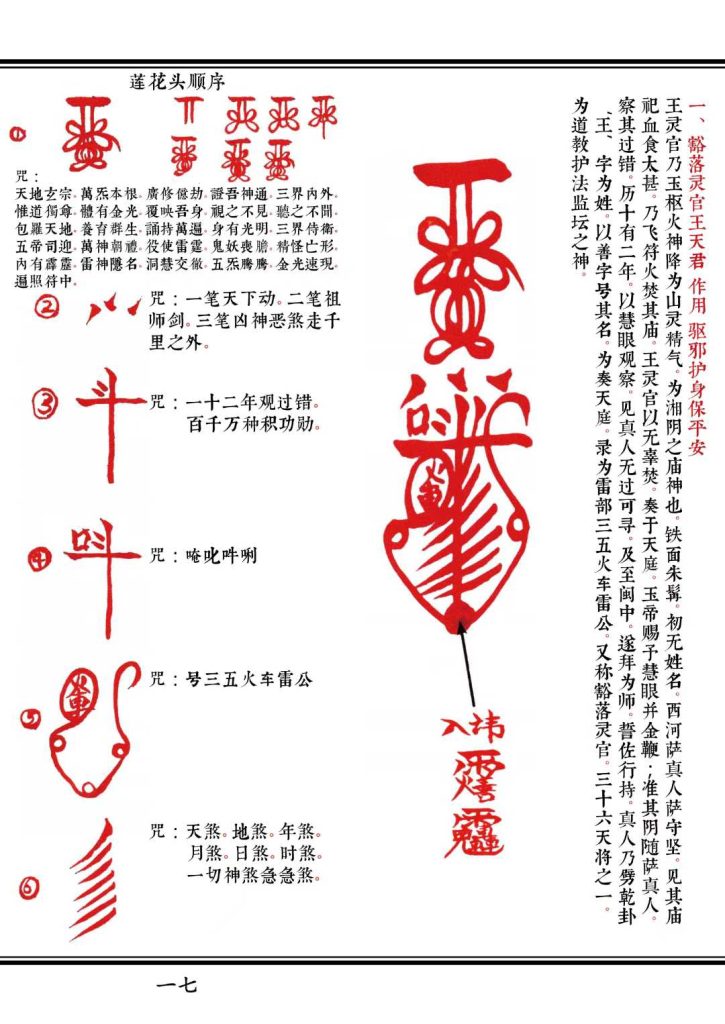 一、豁落灵官王天君 作用 驱邪护身保平安
王灵官乃玉枢火神降为山灵精气。为湘阴之庙神也。铁面朱髯。初无姓名。西河萨真人萨守坚。见其庙
祀血食太甚。乃飞符火焚其庙。王灵官以无辜焚。奏于天庭。玉帝赐予慧眼并金鞭；准其阴随萨真人。
察其过错。历十有二年。以慧眼观察。见真人无过可寻。及至闽中。遂拜为师。誓佐行持。真人乃劈乾卦
、王、字为姓。以善字号其名。为奏天庭。录为雷部三五火车雷公。又称豁落灵官。三十六天将之一。
为道教护法监坛之神。
入讳
莲花头顺序
①
咒：
天地玄宗。萬炁本根。廣修億劫。證吾神通。三界內外。
惟道獨尊。體有金光。覆映吾身。視之不見。聽之不聞。
包羅天地。養育群生。誦持萬遍。身有光明。三界侍衛。
五帝司迎。萬神朝禮。役使雷霆。鬼妖喪膽。精怪亡形。
內有霹靂。雷神隱名。洞慧交徹。五炁騰騰。金光速現。
遍照符中。
②
咒：一笔天下动。二笔祖
师剑。三笔凶神恶煞走千
里之外。
③
斗
咒：一十二年观过错。
百千万种积功勋。
④
咒：唵叱吽唎
⑤
火車
咒：号三五火车雷公
⑥
咒：天煞。地煞。年煞。
月煞。日煞。时煞。
一切神煞急急煞。
一七